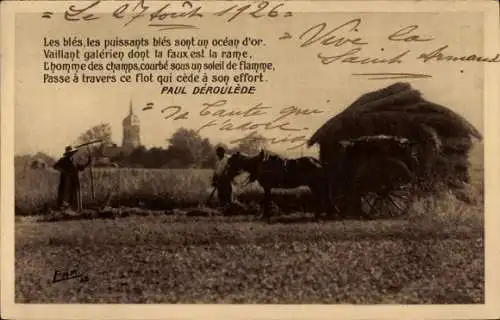 Le 27 août 1926
Les blés, les puissants blés sont un océan d'or.
Vaillant galérien dont la faux est la rame,
L'homme des champs, courbé sous un soleil de flamme,
Passe à travers ce flot qui cède à son effort.
PAUL DÉROULÈDE
Vive la
Saint Armand
Ta Tante qui
t'adore